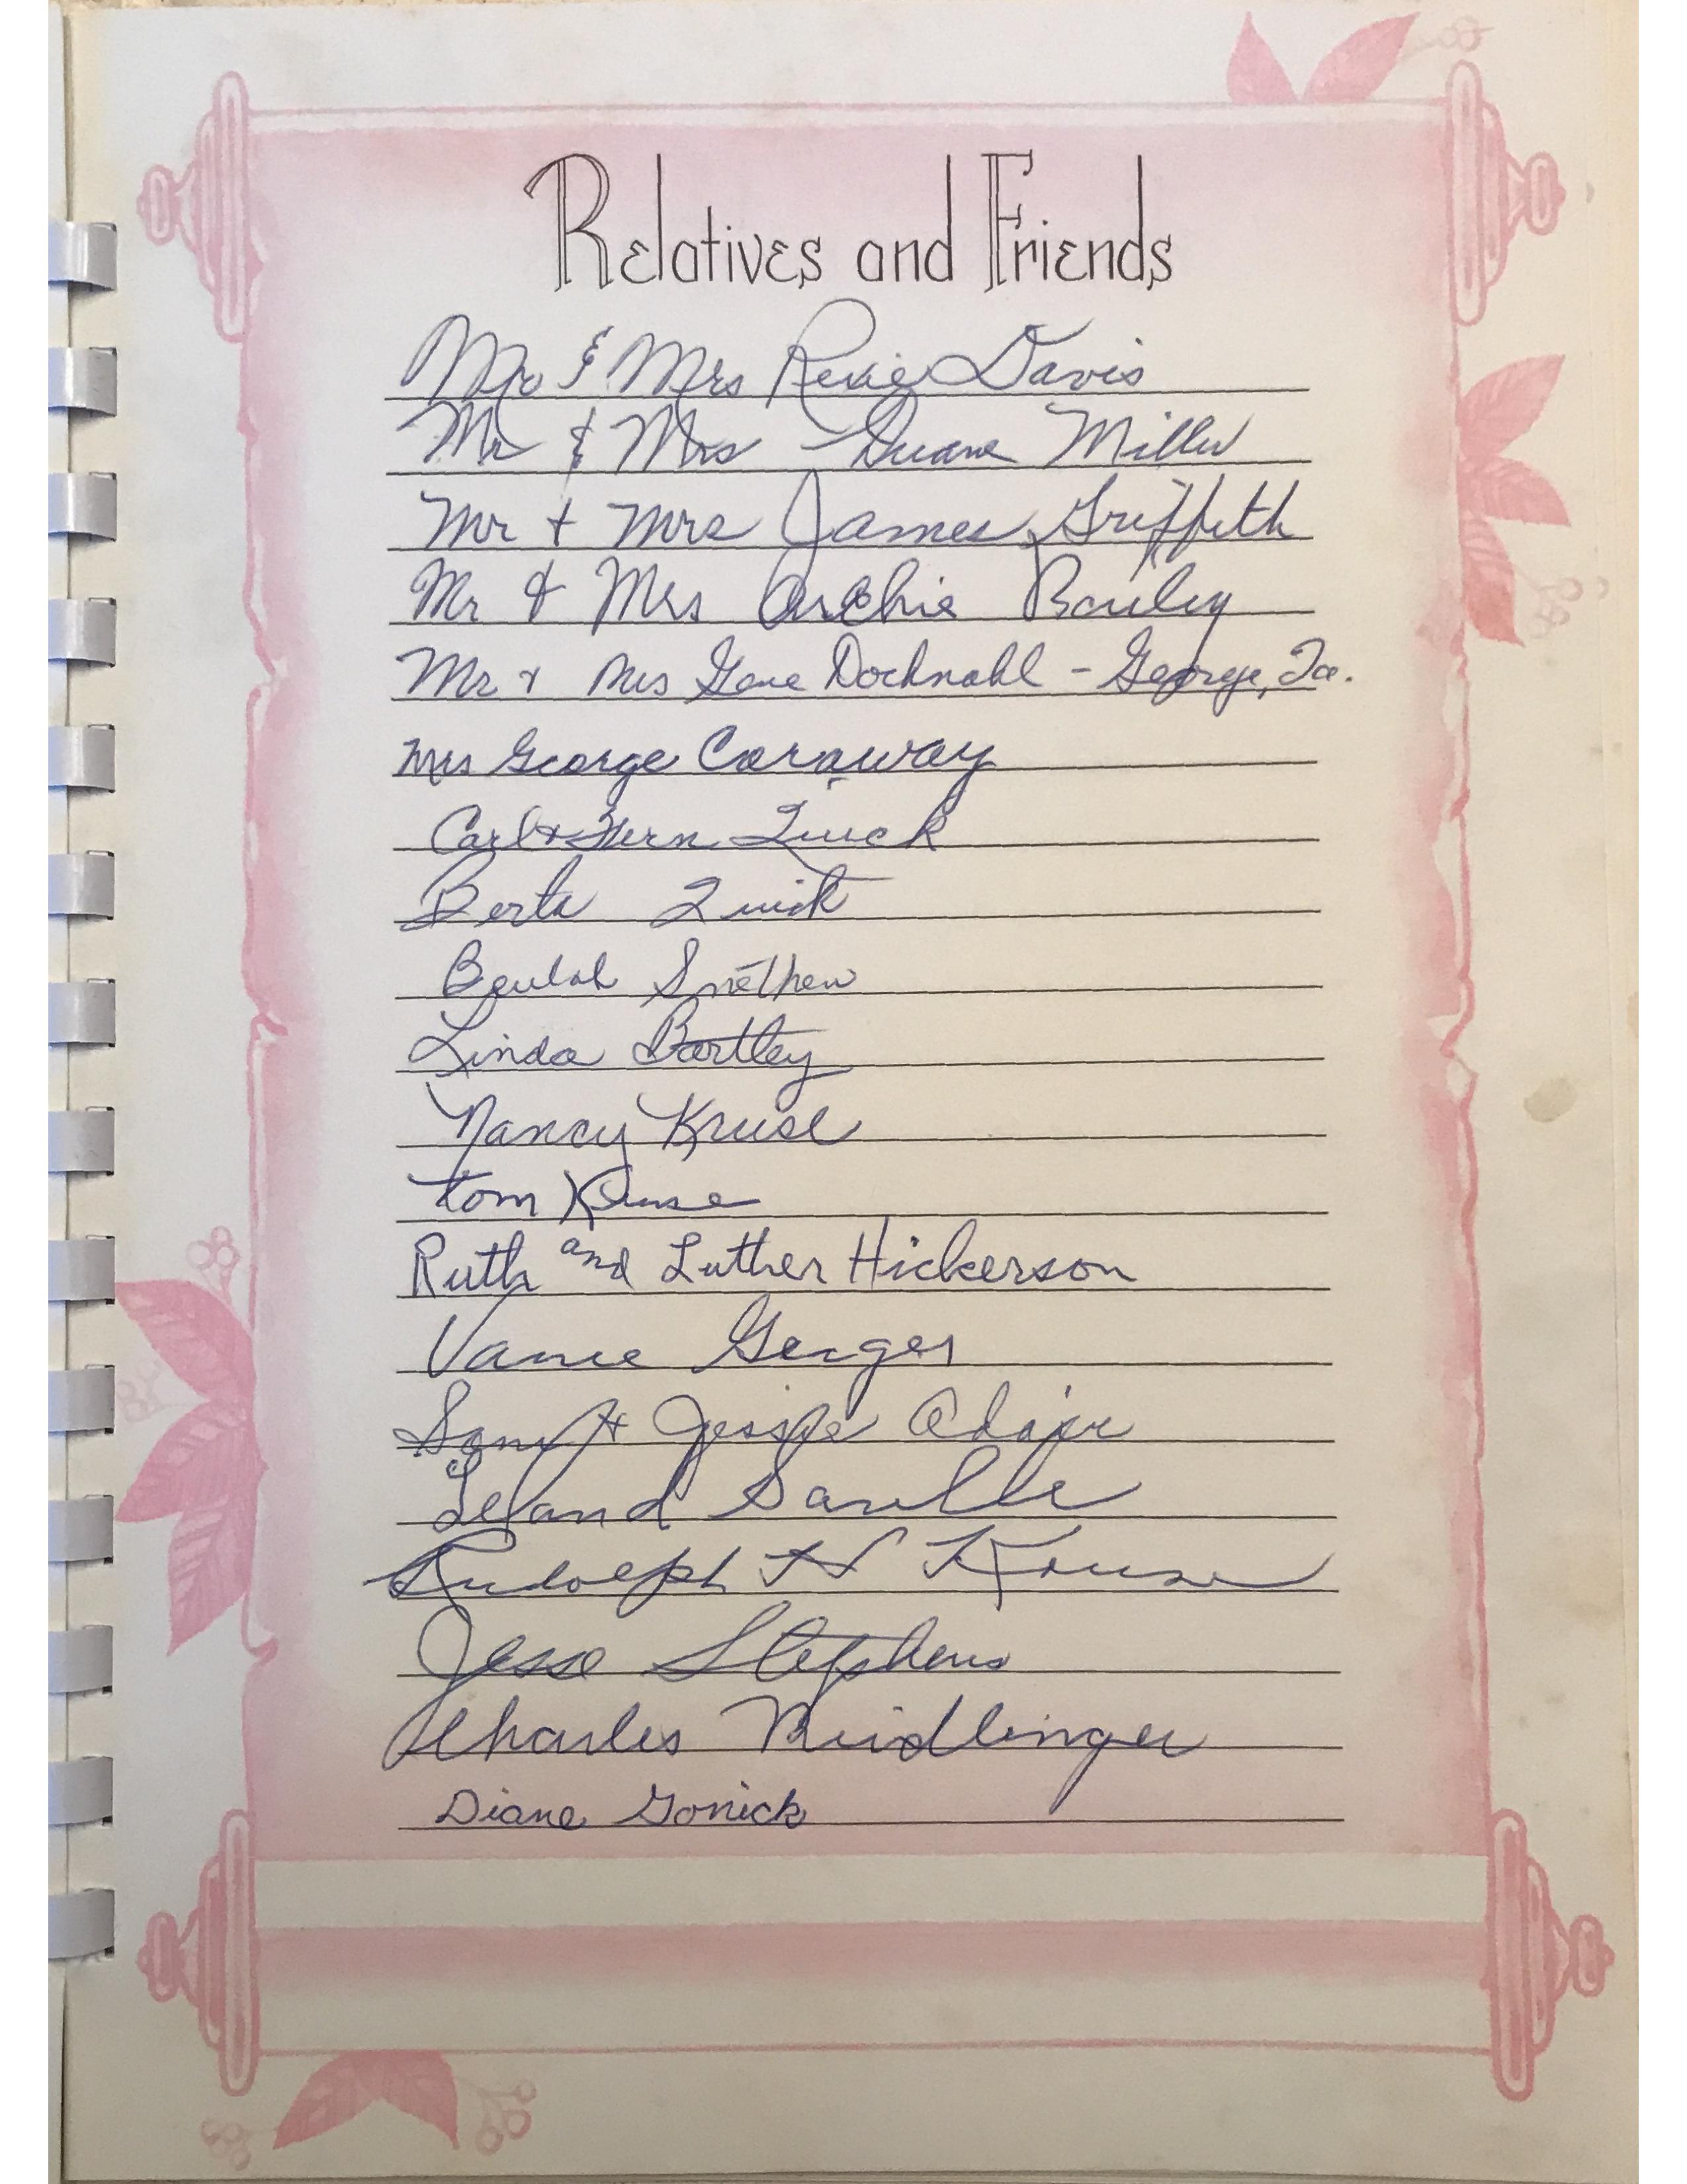 Relatives and Friends
Mr & Mrs Rexie Davis
Mr & Mrs Duane Miller
Mr + Mrs James Griffith
Mr & Mrs Archie Bailey
Mr & Mrs Gene Dochnahl - George, Ia.
Mrs George Caraway
Carl & Fern Quick
Berta Quick
Beulah Snethen
Linda Bartley
Nancy Kruse
Tom Kruse
Ruth and Luther Hickerson
Vance Gerger
Sam & Jessie Adair
Leland Saville
Rudolph H Kruse
Jesse Stephens
Charles Neidlinger
Diane Gonick